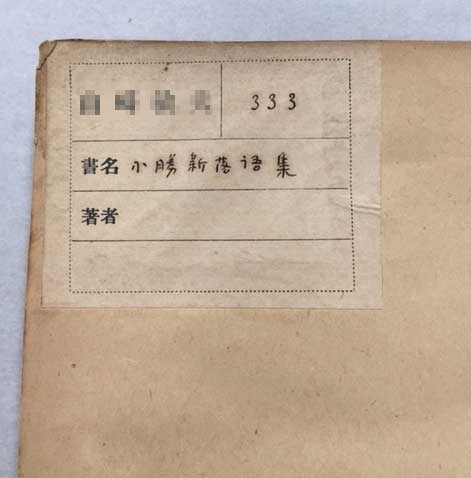 333
書名 小勝新落语集
著者